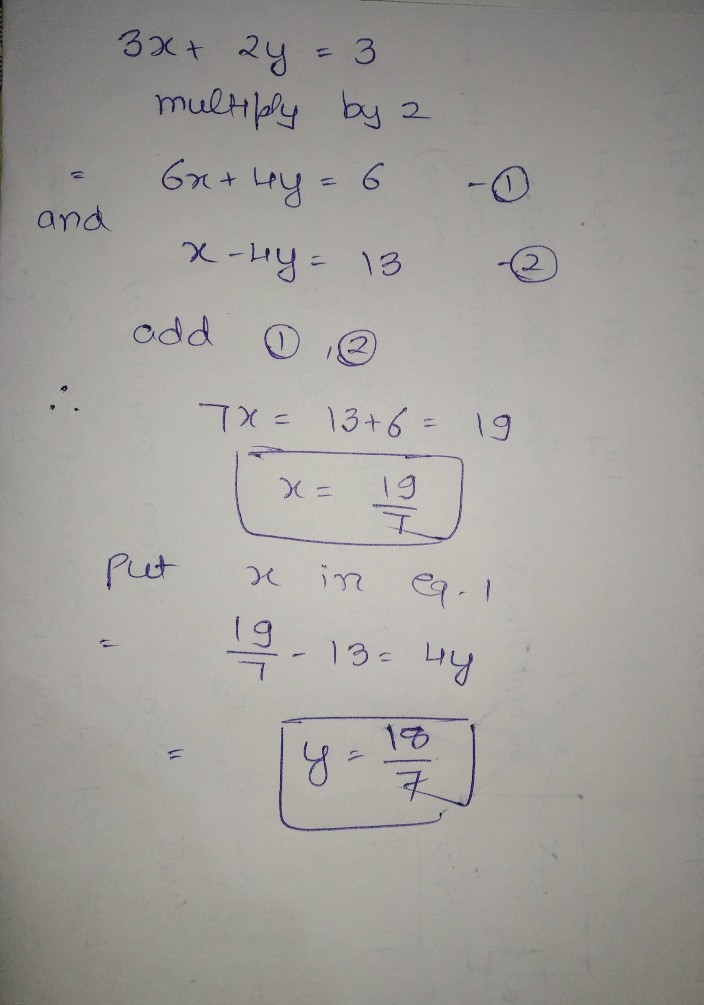 3x + 2y = 3
multiply by 2
= 6x + 4y = 6 - ①
and
x - 4y = 13 - ②
add ① , ②
∴ 7x = 13 + 6 = 19
x = 19/7
Put x in eq. 1
= 19/7 - 13 = 4y
= y = 18/7